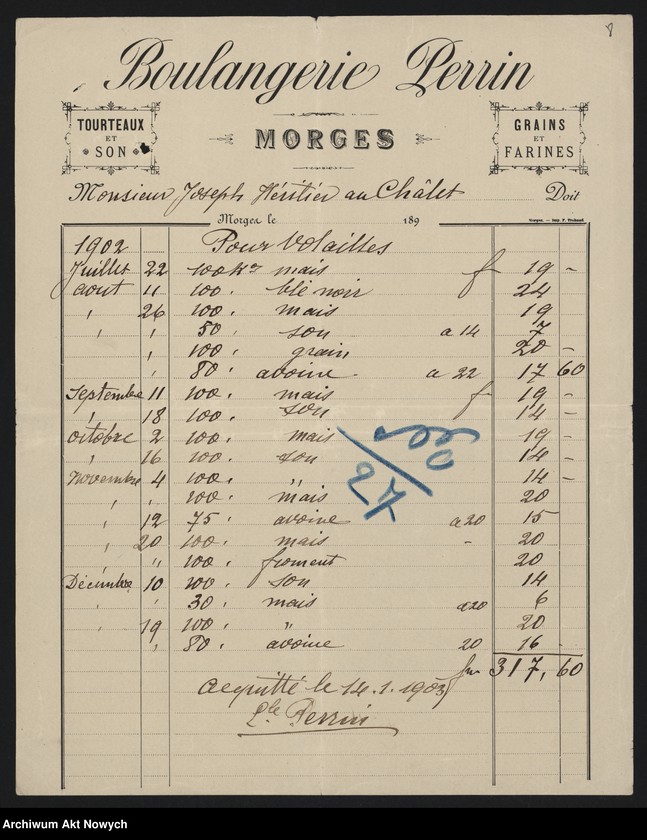 8
Boulangerie Perrin
TOURTEAUX
ET
SON
MORGES
GRAINS
ET
FARINES
Monsieur Joseph Héritier au Châlet Doit
Morges le 189
Morges. — Imp. F. Trabaud
1902 Pour Volailles
Juillet 22 100 Kos mais f 19 -
aout 11 100 " blé noir 24
" 26 100 " mais 19
" " 50 " son a 14 7
100 " grain 20 -
" 80 " avoine a 22 17 60
Septembre 11 100 " mais f 19 -
" 18 100 " son 14 -
octobre 2 100 " mais 19 -
" 16 100 " son 14 -
Novembre 4 100 " " 14 -
" " 100 " mais 20
" 12 75 " avoine a 20 15
" 20 100 " mais - 20
" " 100 " froment 20
Décembre 10 100 " son 14
" " 30 " mais a 20 6
" 19 100 " " 20
" 80 " avoine 20 16 -
frs 317,60
acquitté le 14.1.1903
Perrin
Archiwum Akt Nowych